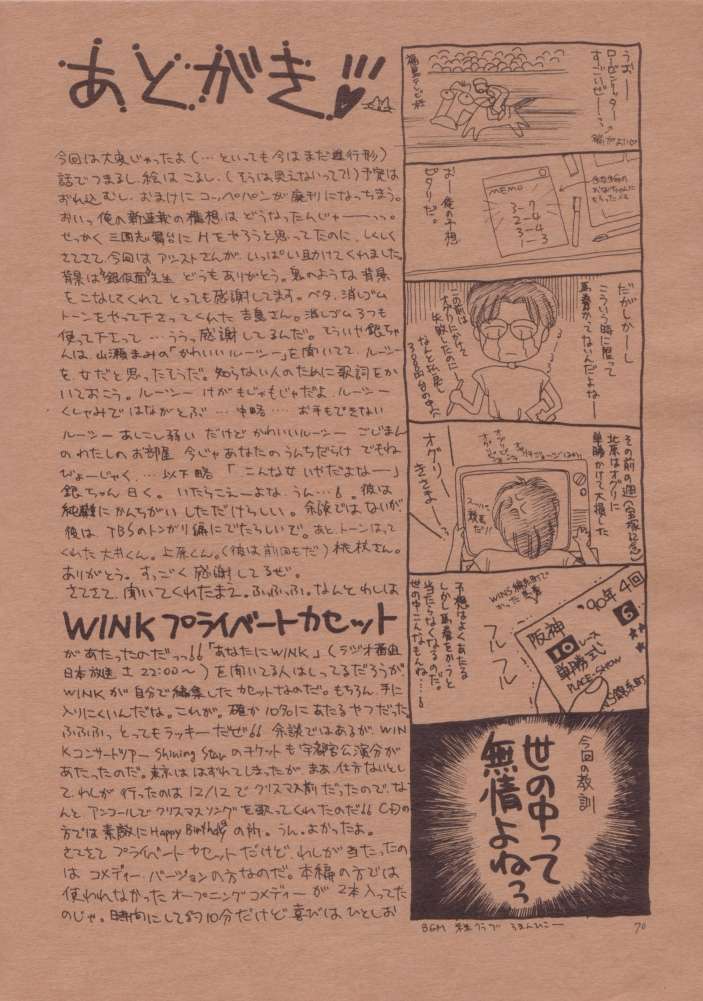 あとがき
今回は大変じゃったよ(…といっても今はまだ進行形)
話でつまるし、絵はこるし、(そうは見えないって?!)予定は
おれ込むし、おまけにコッペパンが廃刊になっちまう。
おいっ俺の新連載の構想はどうなったんじゃーーっっ。
せっかく三国志舞台にHをやろうと思ってたのに、しくしく
さてさて、今回はアシストさんが、いっぱい助けてくれました
背景は"銀仮面"先生 どうもありがとう。鬼のような背景
をこなしてくれて とっても感謝してます。ベタ、消しゴム
トーンをやって下さってくれた 吉島さん。消しゴム3つも
使って下さって…ううっ感謝してるんだ。そういや銀ちゃ
んは、山瀬まみの「かわいいルーシー」を聞いてて、ルーシー
を女だと思ったそうだ。知らない人のために歌詞をか
いておこう。ルーシー けがもじゃもじゃだよ ルーシー
くしゃみではながとぶ …中略… お手もできない
ルーシー あしこし弱い だけど かわいいルーシー ごじまん
のわたしのお部屋 今じゃあなたのうんちだらけ でもね
びょーじゃく、…以下略「こんな女いやだよなー」
銀ちゃん曰く。いたらこえーよな、うん…。彼は
純粋にかんちがいしただけらしい。余談ではないが
彼は、TBSのトンガリ編にでたらしいで。あと、トーンはって
くれた大井くん。上原くん。(彼は前回もだ)桃杖さん。
ありがとう。すっごく感謝してるぜ。
さてさて、聞いてくれたまえ。ふふふふ。なんとわしは
WINKプライベートカセット
があたったのだっっ!!「あなたにWINK」(ラジオ番組
日本放送 土 22:00〜)を聞いてる人はしってるだろうが、
WINKが自分で編集したカセットなのだ。もちろん、手に
入りにくいんだな。これが。確か10名にあたるやつだった
ふふふっ とってもラッキーだぜ!! 余談ではあるが、WIN
Kコンサートツアー Shining Starのチケットも宇都宮公演分が
あたったのだ。東京ははずれてしまったが、まあ、仕方ないとし
て、わしが行ったのは12/12でクリスマス前だったので、な
んと、アンコールでクリスマスソングを歌ってくれたのだ!! CMの
方では素敵にHappy Birthdayの所。うん、よかったよ。
さてさて プライベートカセットだけど、わしが当たったの
は コメディーバージョンの方なのだ。本編の方では
使われなかった オープニングコメディーが 2本入ってた
のじゃ。時間にして約10分だけど 喜びは ひとしお
うおーー
ローゼンリッター
すごいぜーー…
福島テレビ杯
MEMO
3-7
2-4
3-4
1-3
おー俺の予想
ピタリだ。
だがしかーし
こういう時に限って
馬券かってないんだよねー
この前は
オグリにかけて
失敗したのに
その前の週(宝塚記念)
北原はオグリに
単勝かけて大損した
オグリー
きさまーー
予想はよくあたる
しかし馬券をかうと
当たらなくなるのだ。
世の中こんなもんね…。
WINS錦糸町で
かった馬券
フルフル
'90年4回
阪神 6
10レース
単勝式
PLACE-SHOW
WINS錦糸町
今回の教訓
世の中って
無情よねっ
BGM
70